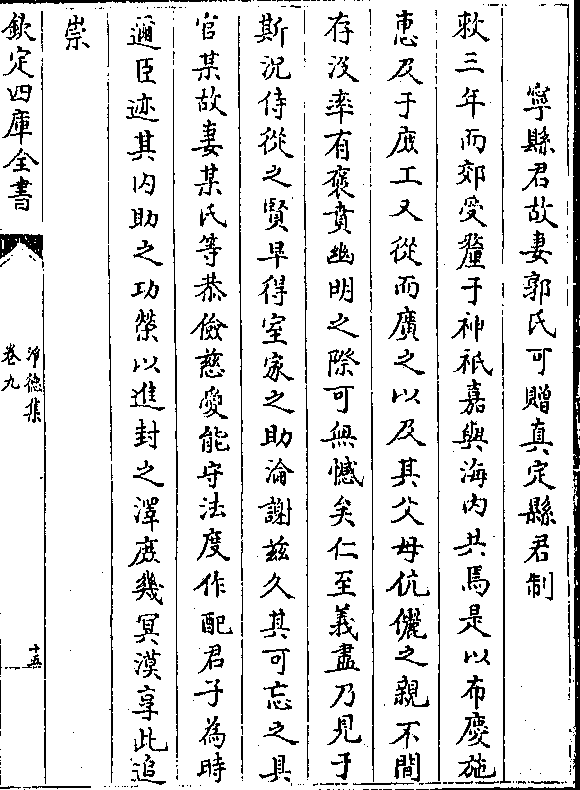 寧縣君故妻郭氏可贈真定縣君制
敕三年而郊受釐于神祇嘉與海内共焉是以布慶施
恵及于庶工又從而廣之以及其父母伉儷之親不間
存没率有褒賁幽明之際可無憾矣仁至義盡乃見于
斯況侍從之賢早得室家之助淪謝兹久其可忘之具
官某故妻某氏等恭儉慈愛能守法度作配君子為時
邇臣迹其内助之功榮以進封之澤庶幾冥漠享此追
崇
欽定四庫全書
净德集
卷九
十五